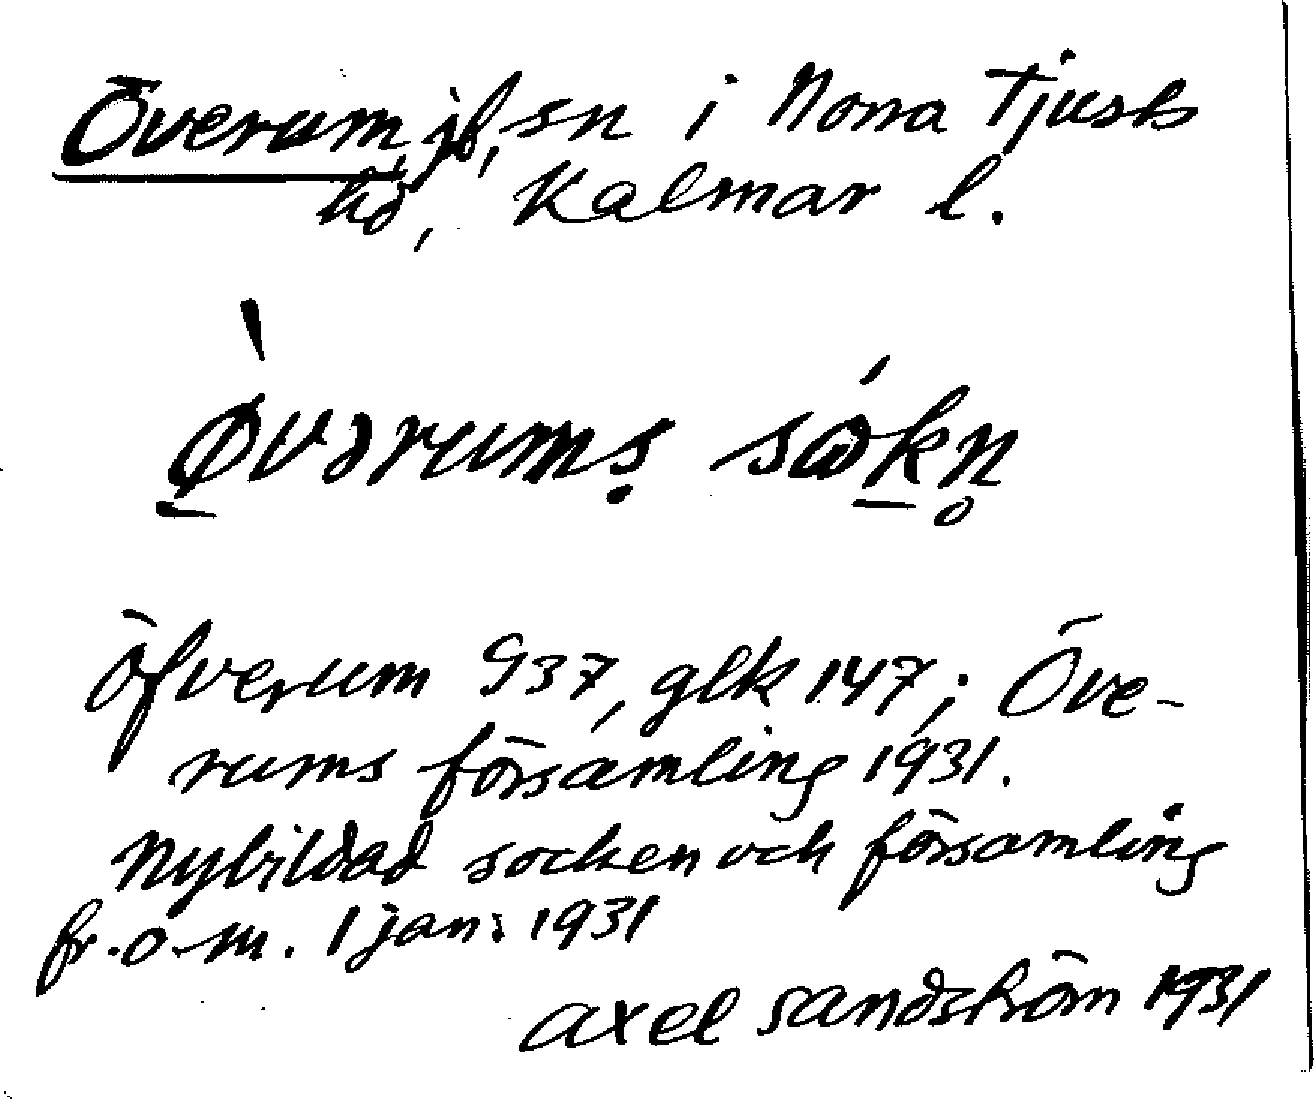 Överum, jf, sn i Norra Tjusts
hd, Kalmar l.
Øvərums sɷkn̥
Öfverum G37, glk 147; Öve-
rums församling 1931.
Nybildad socken och församling
fr.o.m. 1 jan. 1931
Axel Sandström 1931